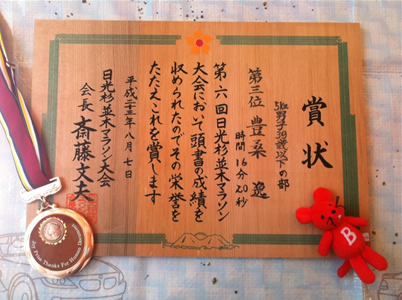 賞状
5km男子39歳以下の部
第三位 豊桑 逸
時間16分20秒
第六回日光杉並木マラソン
大会において頭書の成績を
収められたのでその栄誉を
たたえこれを賞します
平成二十三年八月七日
日光杉並木マラソン大会
会長 斎藤文夫
B